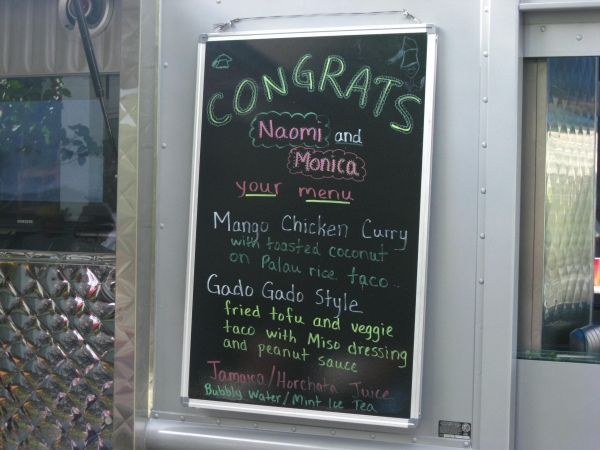 CONGRATS
Naomi and
Monica
your menu
Mango Chicken Curry
with toasted coconut
on Palau rice taco
Gado Gado Style
fried tofu and veggie
taco with Miso dressing
and peanut sauce
Jamaica/Horchata Juice
Bubbly Water/Mint Ice Tea
SAMSUNG